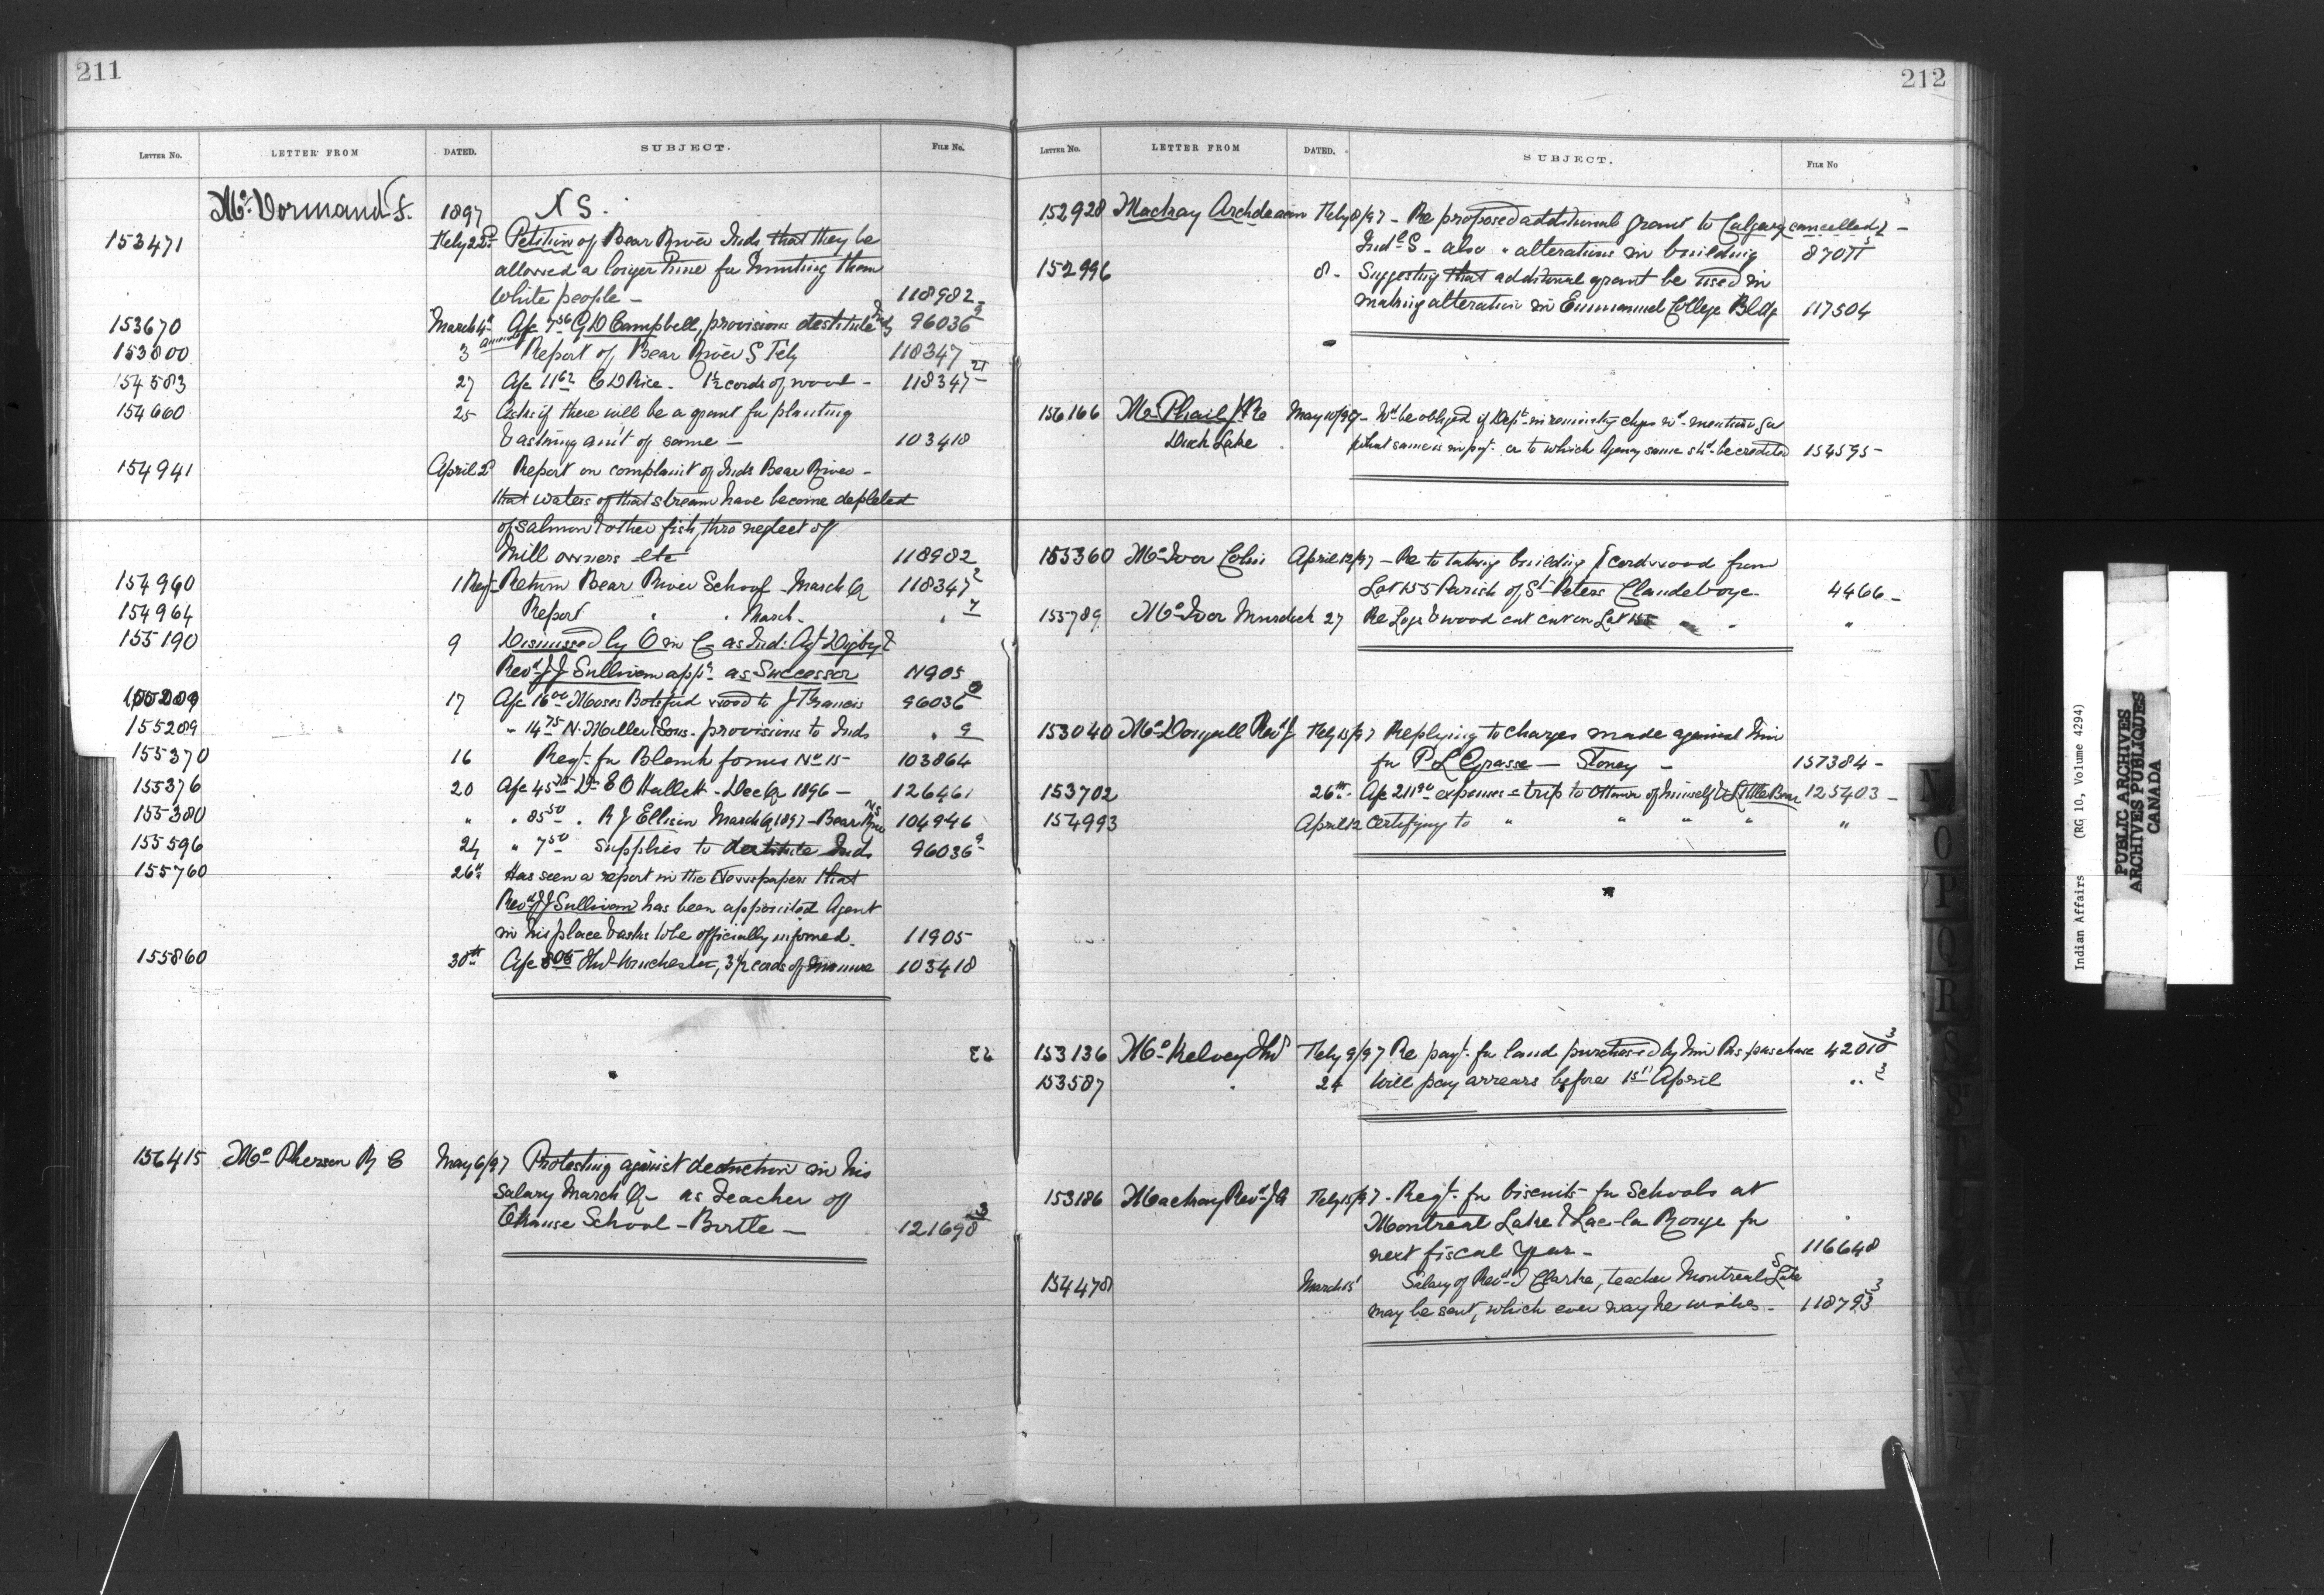 211
LETTER No. LETTER FROM DATED. SUBJECT. FILE No.
McDormand S. 1897 N S.
153471 Feby 22d Petition of Bear River Inds that they be
allowed a longer time for hunting than
white people — 118982
153670 March 4th A/c 7.56 G D Campbell, provisions destitute Inds 96036 9
153800 3 annual Report of Bear River S Feby 118347
154583 27 A/c 11.62 C D Rice. 1½ cords of wood — 118347 21
154600 25 Asks if there will be a grant for planting
& asking am't of same — 103418
154941 April 2d Report on complaint of Inds Bear River —
that waters of that stream have become depleted
of salmon & other fish, thro neglect of
Mill owners etc 118982
154960 1 Regt Return Bear River School March Q 118347 2
154964 Report " " March — " 7
155190 9 Dismissed by O in C as Ind: Agt Digby &
Revd J J Sullivan app'd as Successor 11905
155209 17 A/c 16.00 Moses Botsford wood to J Francis 96036 9
155289 " 14.75 N. Miller & Sons — provisions to Inds " 9
155370 16 Regt. for Blank forms No 15 — 103864
155376 20 A/c 45.75 Dr E O Hallett — Dec Q 1896 — 126461
155380 " " 85.50 " R J Ellison March Q 1897 — Bear River NS 104946
155596 24 " 7.50 Supplies to destitute Inds 96036 9
155760 26th Has seen a report in the Newspapers that
Revd J J Sullivan has been appointed Agent
in his place & asks to be officially informed. 11905
155860 30th A/c Winchester, 3½ cords of manure 103418
156415 McPherson R C May 6/97 Protesting against deduction in his
Salary March Q — as Teacher of
School — Birtle — 121698 3
212
LETTER No. LETTER FROM DATED. SUBJECT. FILE No
152928 Mackay Archdeacon Feby 8/97 — Re proposed additional grant to Calgary cancelled —
Indl S — also " alterations in building 87011 3
152996 8 — Suggesting that additional grant be used in
making alteration in Emmanuel College Bldg 117504
156166 McPhail J Re May 10/97 — Wd be obliged if Dept in remitting chqs wd mention for
Duck Lake what same is in payt. or to which Agency same shd be credited 154595 —
155360 McIvor Colin April 12/97 — Re to taking building & cordwood from
Lot 155 Parish of St Peters Clandeboye — 4466 —
155789 McIvor Murdoch 27 Re Logs & wood cut on Lot 155 " " "
153040 McDougall Revd J Feby 15/97 Replying to charges made against him
for P L Grasse — Stoney — 157384 —
153702 26th. A/c 211.90 expenses trip to Ottawa of himself & Little Bear 125403 —
154993 April 12 Certifying to " " " " "
153136 McKelvey Jno Feby 9/97 Re payt. for land purchased by him Pas purchase 42010 3
153587 " 24 Will pay arrears before 1st April " 3
153186 Mackay Revd J A Feby 15/97 — Regt. for biscuits for Schools at
Montreal Lake & Lac la Ronge for
next fiscal Year — 116648
154478 March 15' Salary of Revd J Clarke, teacher Montreal Lake S
may be sent, which ever way he wishes — 118793 3
N
O
P
Q
R
S
Indian Affairs (RG 10, Volume 4294)
PUBLIC ARCHIVES
ARCHIVES PUBLIQUES
CANADA